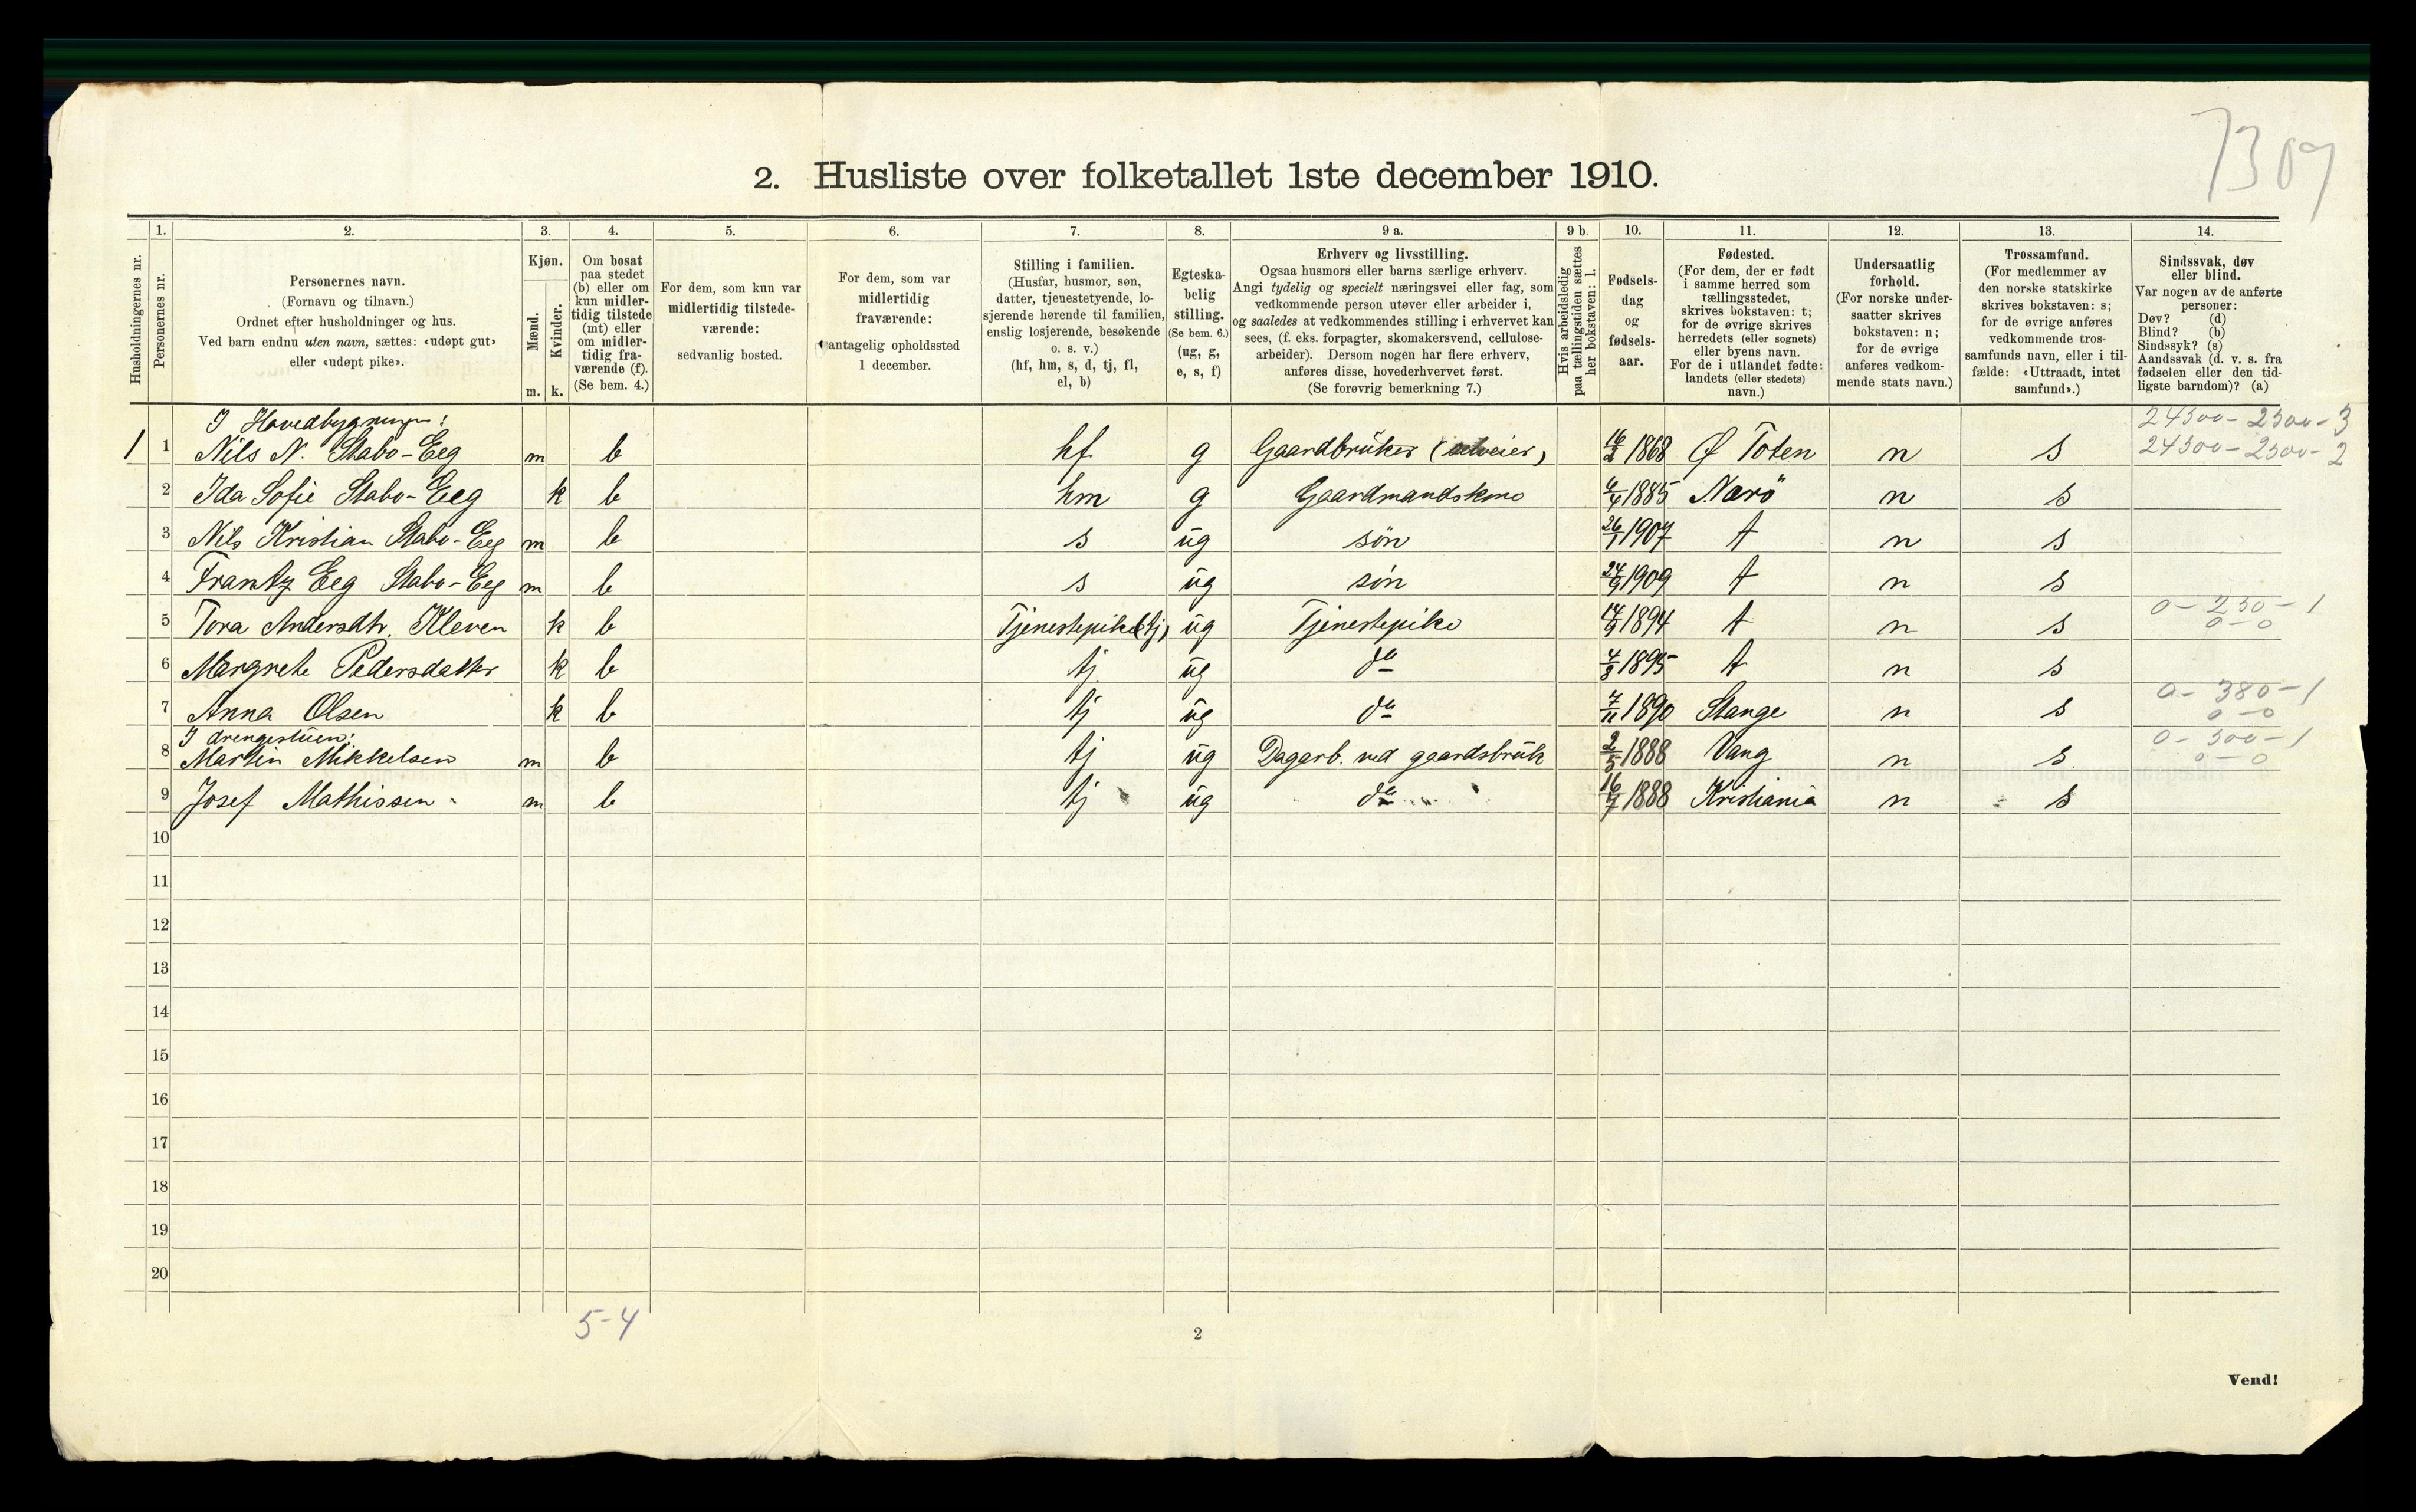 7309
2. Husliste over folketallet 1ste december 1910.
Husholdningernes nr.
1. Personernes nr.
2. Personernes navn. (Fornavn og tilnavn.) Ordnet efter husholdninger og hus. Ved barn endnu uten navn, sættes: «udøpt gut» eller «udøpt pike».
3. Kjøn. Mænd. m. Kvinder. k.
4. Om bosat paa stedet (b) eller om kun midlertidig tilstede (mt) eller om midlertidig fraværende (f). (Se bem. 4.)
5. For dem, som kun var midlertidig tilstedeværende: sedvanlig bosted.
6. For dem, som var midlertidig fraværende: antagelig opholdssted 1 december.
7. Stilling i familien. (Husfar, husmor, søn, datter, tjenestetyende, losjerende hørende til familien, enslig losjerende, besøkende o. s. v.) (hf, hm, s, d, tj, fl, el, b)
8. Egteskabelig stilling. (Se bem. 6.) (ug, g, e, s, f)
9 a. Erhverv og livsstilling. Ogsaa husmors eller barns særlige erhverv. Angi tydelig og specielt næringsvei eller fag, som vedkommende person utøver eller arbeider i, og saaledes at vedkommendes stilling i erhvervet kan sees, (f. eks. forpagter, skomakersvend, cellulosearbeider). Dersom nogen har flere erhverv, anføres disse, hovederhvervet først. (Se forøvrig bemerkning 7.)
9 b. Hvis arbeidsledig paa tællingstiden sættes her bokstaven: l.
10. Fødselsdag og fødselsaar.
11. Fødested. (For dem, der er født i samme herred som tællingsstedet, skrives bokstaven: t; for de øvrige skrives herredets (eller sognets) eller byens navn. For de i utlandet fødte: landets (eller stedets) navn.)
12. Undersaatlig forhold. (For norske undersaatter skrives bokstaven: n; for de øvrige anføres vedkommende stats navn.)
13. Trossamfund. (For medlemmer av den norske statskirke skrives bokstaven: s; for de øvrige anføres vedkommende trossamfunds navn, eller i tilfælde: «Uttraadt, intet samfund».)
14. Sindssvak, døv eller blind. Var nogen av de anførte personer: Døv? (d) Blind? (b) Sindssyk? (s) Aandssvak (d. v. s. fra fødselen eller den tidligste barndom)? (a)
I Hovedbygningen: 24500 - 2500 - 3
1 1 Nils N. Stabo-Eeg m b hf g Gaardbruker (selveier) 16/2 1868 Ø Toten n s 24500 - 2500 - 2
2 Ida Sofie Stabo-Eeg k b hm g Gaardmandskone 4/4 1885 Nærö n s
3 Nils Kristian Stabo-Eeg m b s ug søn 26/1 1907 t n s
4 Frantz Eeg Stabo-Eeg m b s ug søn 24/9 1909 t n s
0 - 250 - 1
5 Tora Andersdtr. Kleven k b Tjenestepike (tj) ug Tjenestepike 14/9 1894 t n s 0 - 0
6 Margrete Pedersdatter k b tj. ug do 4/8 1895 t n s
0 - 380 - 1
7 Anna Olsen k b tj ug do 7/11 1890 Stange n s 0 - 0
I drengestuen: 0 - 500 - 1
8 Martin Mikkelsen m b tj ug Dagarb. ved gaardsbruk 2/5 1888 Vang n s 0 - 0
9 Josef Mathissen m b tj ug do 16/7 1888 Kristiania n s
10
11
12
13
14
15
16
17
18
19
20
5-4
2
Vend!